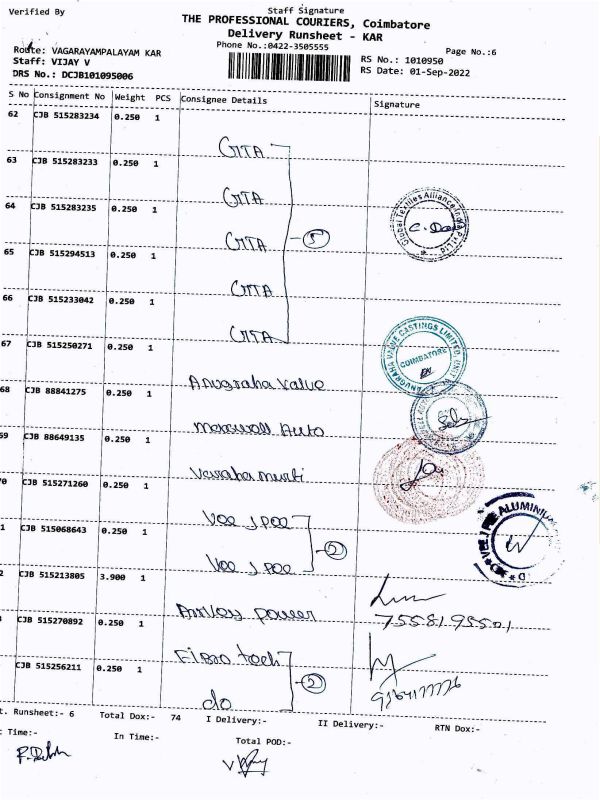 Verified By
Staff Signature
THE PROFESSIONAL COURIERS, Coimbatore
Delivery Runsheet - KAR
Phone No.:0422-3505555
Page No.:6
Route: VAGARAYAMPALAYAM KAR
Staff: VIJAY V
DRS No.: DCJB101095006
RS No.: 1010950
RS Date: 01-Sep-2022
S No Consignment No Weight PCS Consignee Details Signature
62 CJB 515283234 0.250 1
GTTA
63 CJB 515283233 0.250 1
GTTA
64 CJB 515283235 0.250 1
GTTA
5
Global Textiles Alliance India Pvt Ltd
65 CJB 515294513 0.250 1
GTTA
66 CJB 515233042 0.250 1
GTTA
67 CJB 515250271 0.250 1
Anugraha Value
ANUGRAHA VALVE CASTINGS LIMITED, UNIT
COIMBATORE
68 CJB 88841275 0.250 1
Auto
69 CJB 88649135 0.250 1
CJB 515271260 0.250 1
Vee J Pee
1 CJB 515068643 0.250 1
Vee J Pee
2
VEE J PEE ALUMINIUM
2 CJB 515213805 3.900 1
power
CJB 515270892 0.250 1
tech
CJB 515256211 0.250 1
do
2
t. Runsheet:- 6 Total Dox:- 74 I Delivery:- II Delivery:- RTN Dox:-
Time:- In Time:- Total POD:-